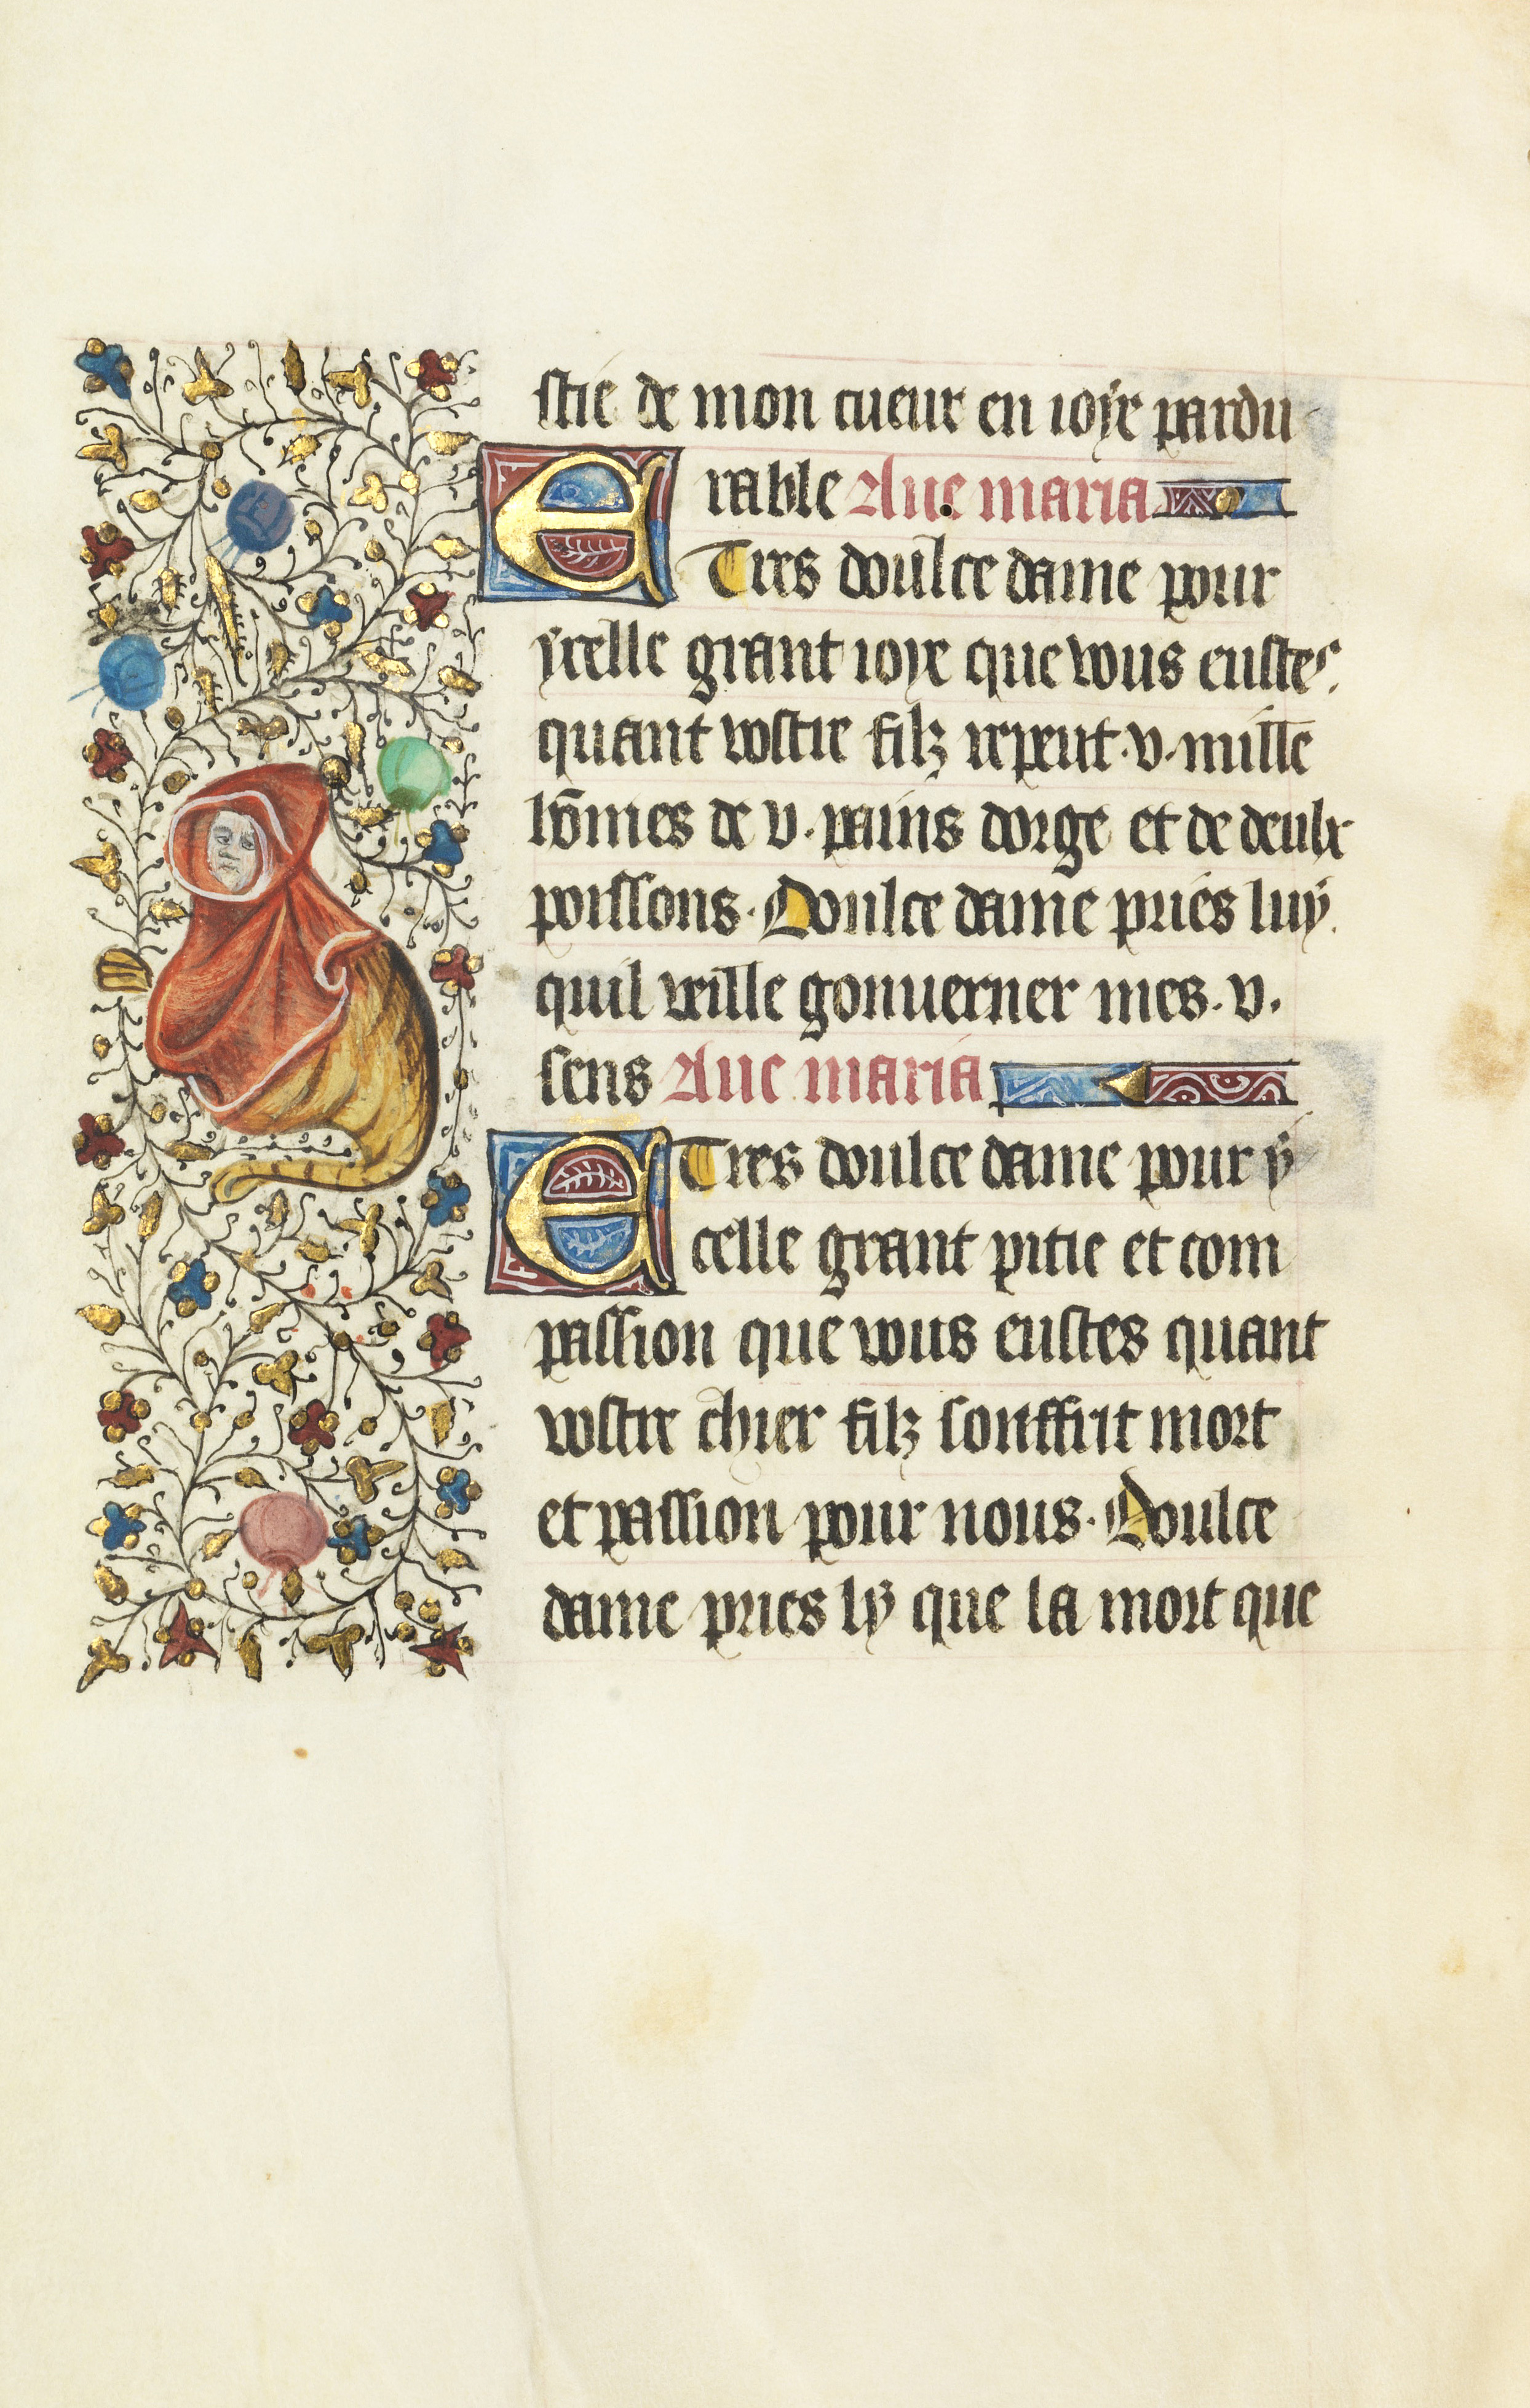 stie de mon cueur en ioye pardu
rable Aue maria
E Tres doulce dame pour
ycelle grant ioye que vous eustes
quant vostre filz repeut .v. mille
hōmes de v. pains dorge et de deulx
poissons. Doulce dame pries luy
quil veille gouuerner mes .v.
sens Aue maria
E Tres doulce dame pour y
celle grant pitie et com
passion que vous eustes quant
vostre chier filz souffrit mort
et passion pour nous. Doulce
dame pries ly que la mort que